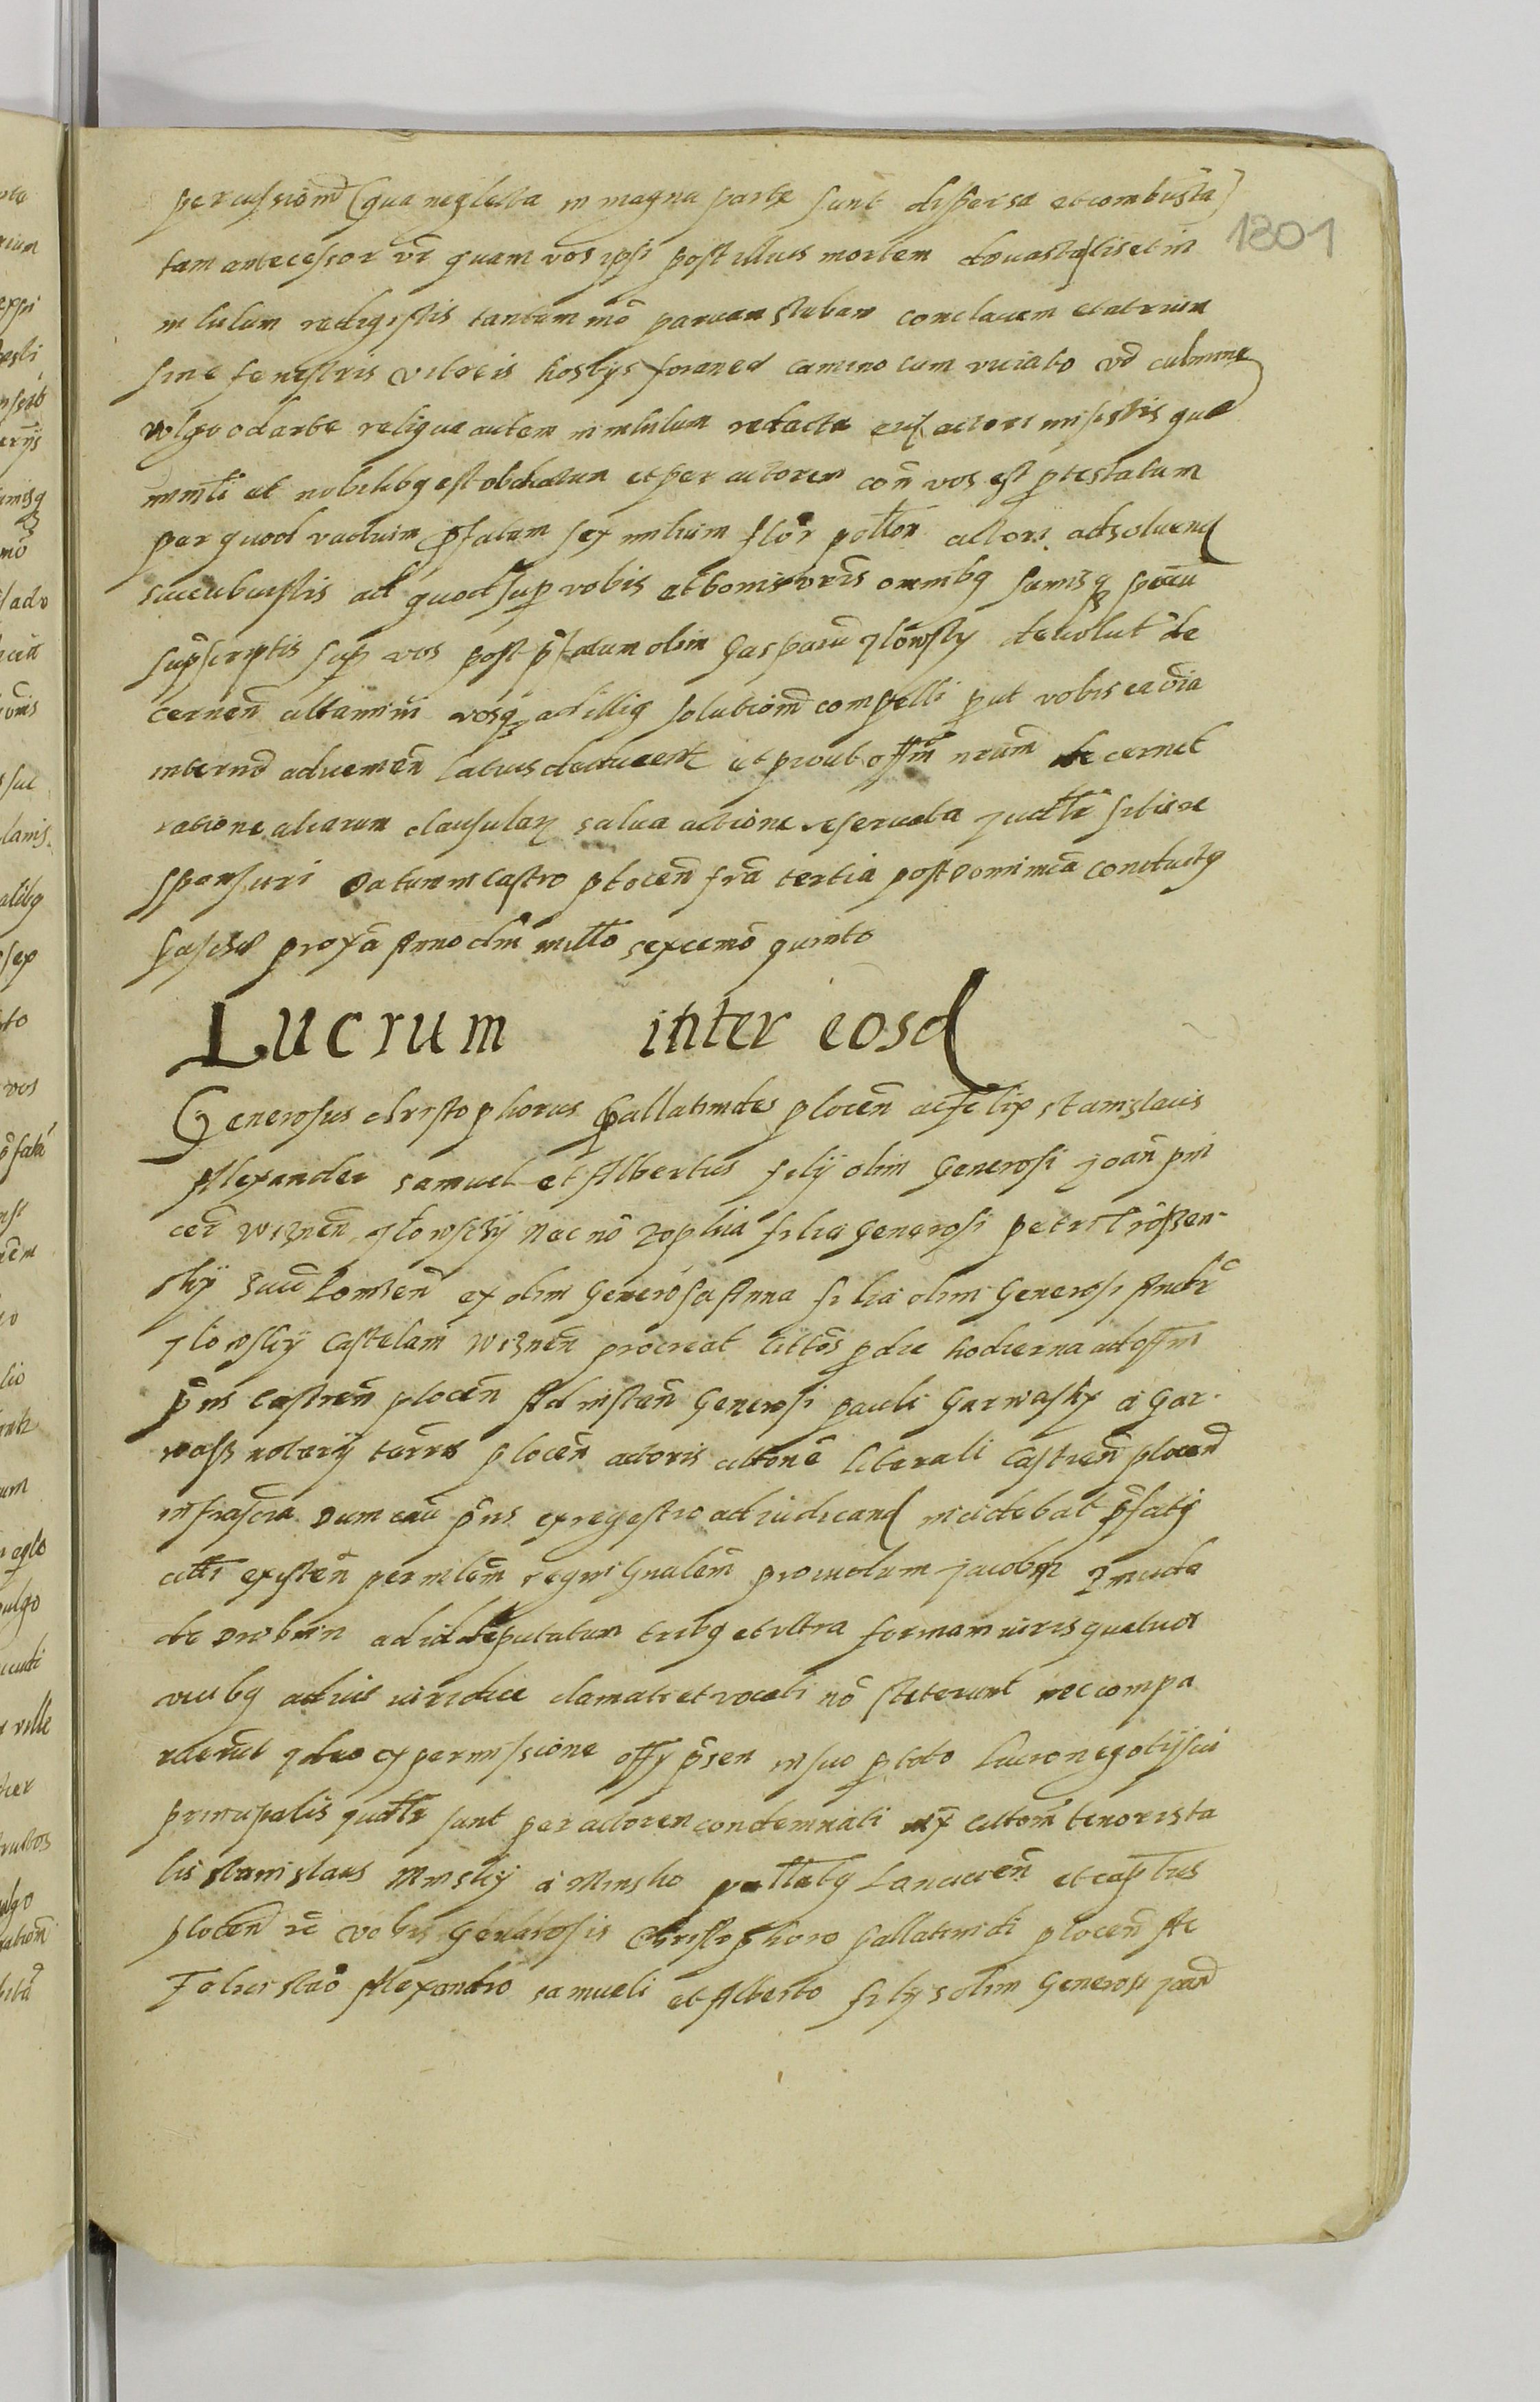 percussione (qua neglecta in magna parte sunt dispersa et combusta)
1801
tam antecessor vr quam vos ipsi post illius mortem devastastis et in
nihilum redigistis tantummo parvam stubam conclavem et atrium
sine fenestris vitreis hostys foranea camino cum viciato culmine
vulgo odarte reliqua autem in nihilum redacta actori misistis quae
et nobilibq est obductum et per actorem con vos est ptestatum
per quod vadium pfatum sex milium flor polton actori adsolvend
succubuistis ad quod sup vobis et bonis vris omnibq sumisq
supscriptis sup vos post pfatum olim Gasparu Ilowsky devolut de
cernen vosq ad illig solutiom compelli put vobis ea oia
termo advenien latius deducent et prout offm nrum decernet
ratione aliarum clausular salva actione reservata judtr sitis re
sponsuri Datum in Castro plocen fra tertia post Dominica Conductq
Pasche proxa Anno dni millo sexcemo quinto
Lucrum inter eosd
Generosus christophorus Pallatinides plocen ac felix stanislaus
Alexander samuel et Albertus filij olim Generosi Joan pin
cer wiznen Ilowskij nec no zophia filia Generosi petri
skij Lomzen ex olim Generosa Anna filia olim Generosi Andr
Ilowskij Castelani wiznen procreat citti pdie hodierna ad offm
pns castren plocen Ad instan Generosi pauli Garwasky a Gar-
wasz notarij terris plocen actoris cittone liberali Castren plocen
infrascra Dum cau pns ex regestro ad iudicand incidebat pfatq
citti existen per milem regni Gnalem providum jacobum zmuda
de Drobnin ad id deputatum tribq et ultra formam iuris quatuor
vicibq ad ius iuridice clamati et vocati no steterunt nec compa
ruerunt Ideo ex permissione offy psen in suo ptoto Lucro negotij sui
principalis judtr sunt per actorem condemnati Cittom tenor est ta
lis stanislaus Minskij a Minsko pallatq Lancicien et captus
plocen vobis Generosis Christophoro pallatinidi plocen Ac
Felici stao Alexandro samueli et Alberto filijs olim Generosi Joan